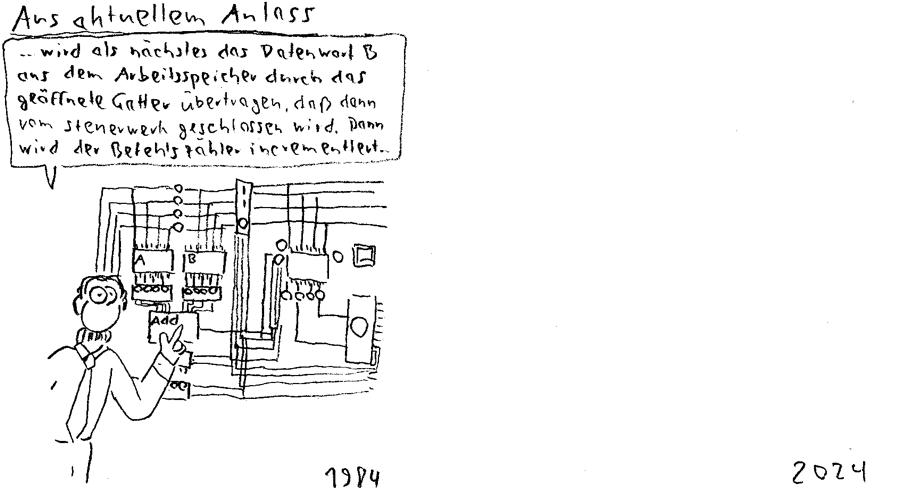 Aus aktuellem Anlass
... wird als nächstes das Datenwort B
aus dem Arbeitsspeicher durch das
geöffnete Gatter übertragen, daß dann
vom Steuerwerk geschlossen wird. Dann
wird der Befehlszähler incrementiert...
A
B
Add
1984
2024